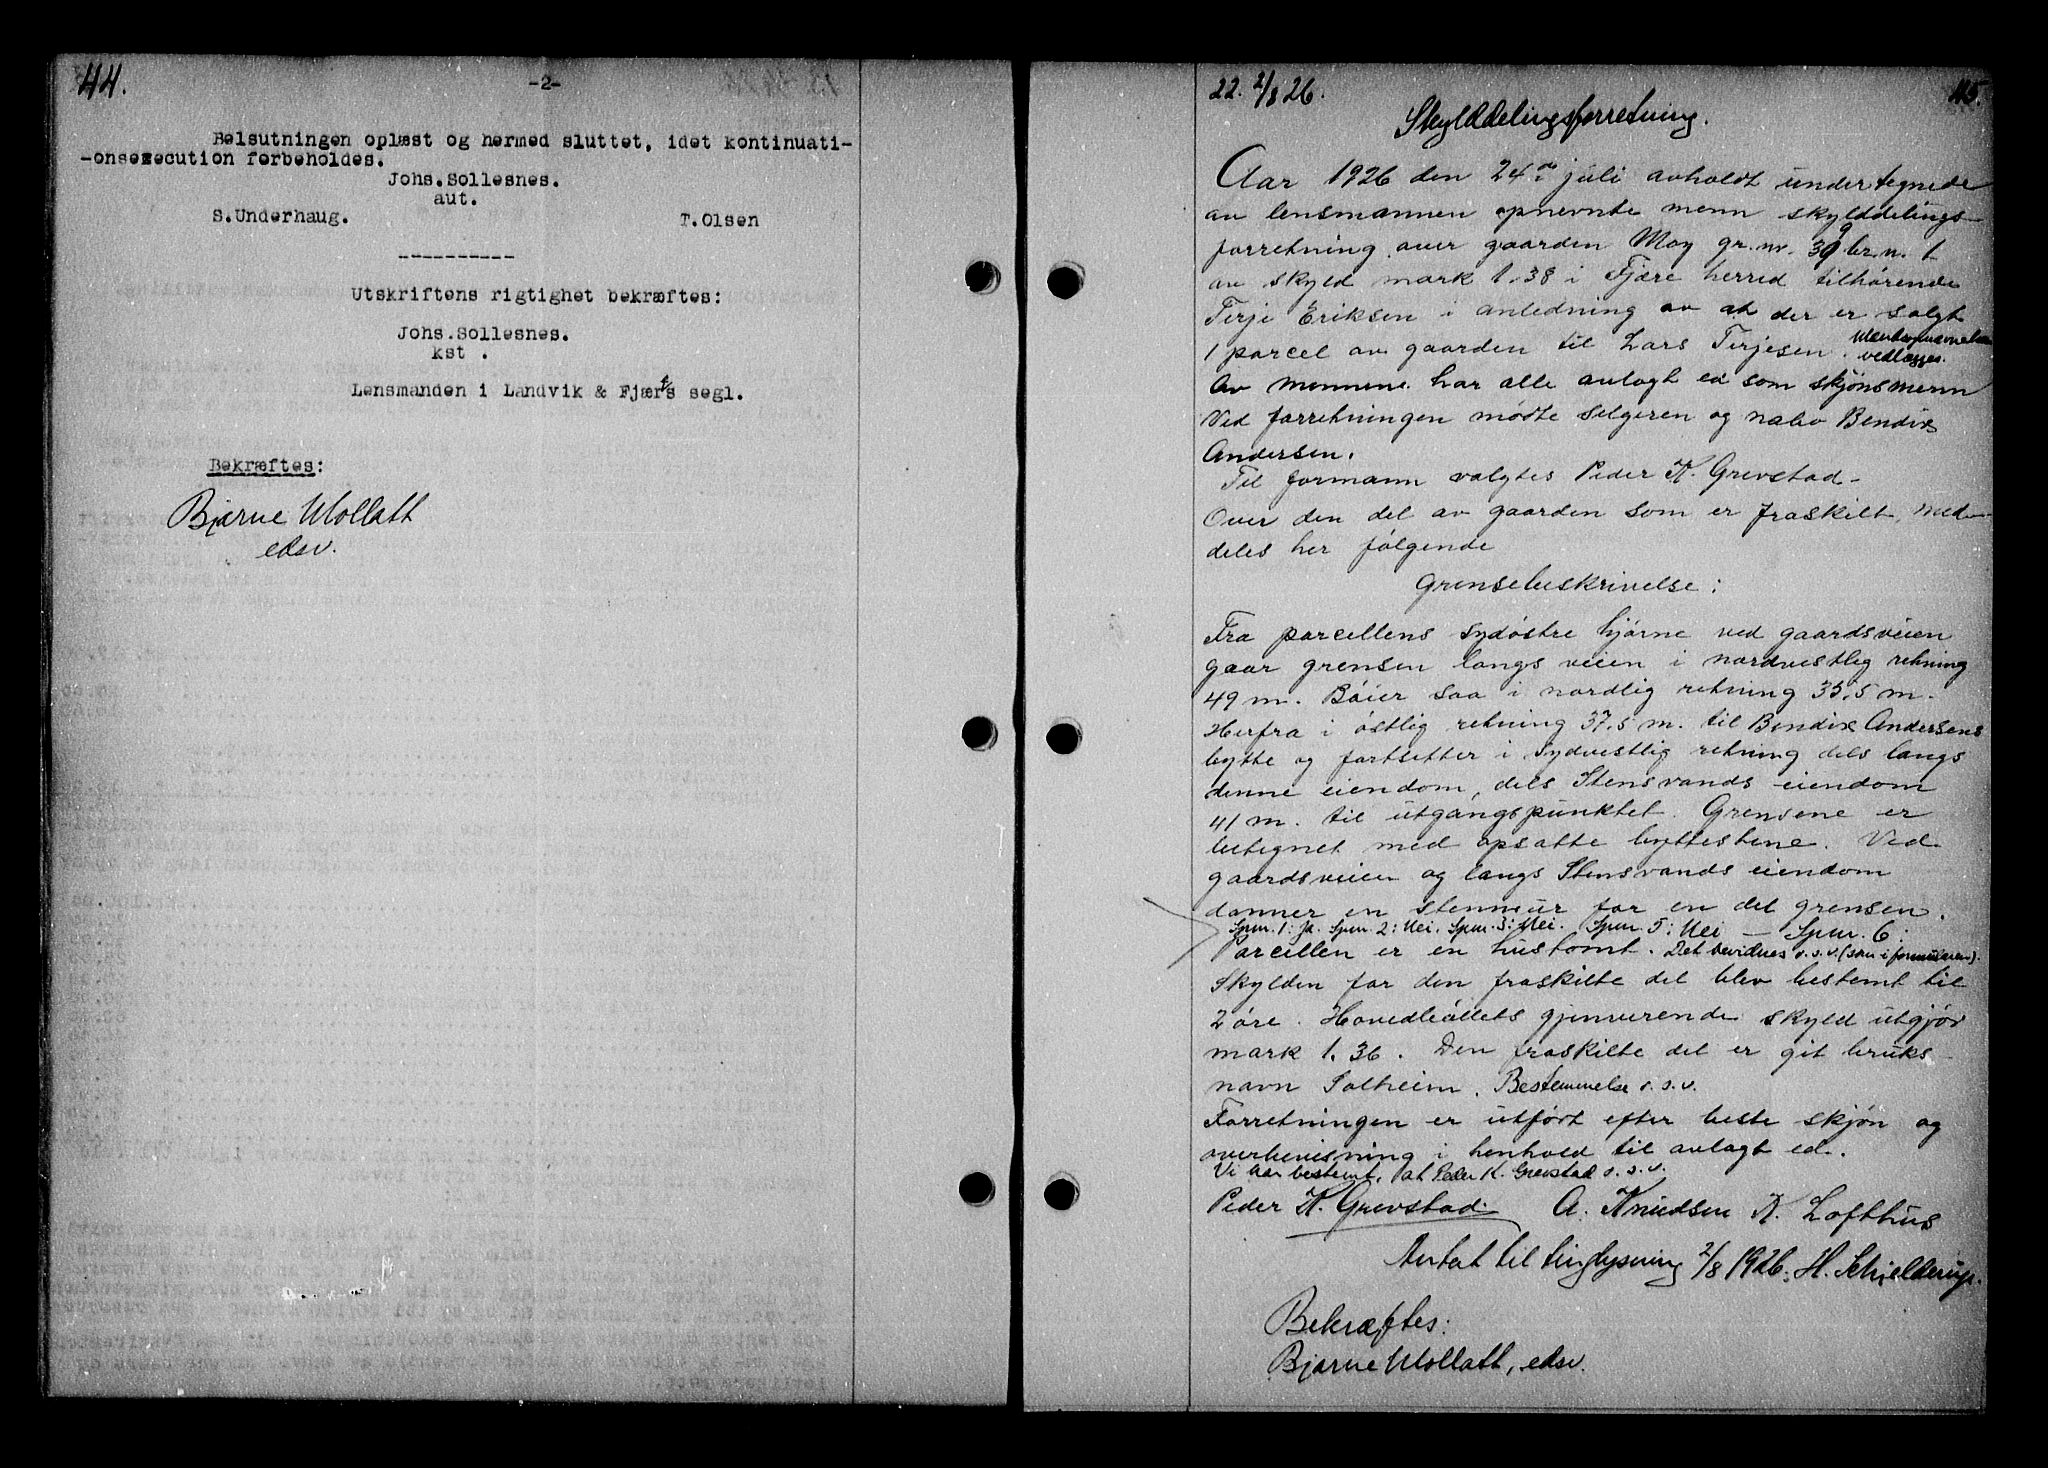 44.
-2-
Belsutningen oplæst og hermed sluttet, idet kontinuati-
-onsexecution forbeholdes.
Johs.Sollesnes.
aut.
S.Underhaug. T.Olsen
----------
Utskriftens rigtighet bekræftes:
Johs.Sollesnes.
kst .
Lensmanden i Landvik & Fjære's segl.
Bekræftes:
Bjarne Mollatt
edsv.
22. 2/8 26. 45.
Skylddelingsforretning.
Aar 1926 den 24de juli avholdt undertegnede
av lensmannen opnevnte menn skylddelings-
forretning over gaarden Moy gr. nr. 39 br. n. 1
av skyld mark 1.38 i Fjære herred tilhørende
Terje Eriksen i anledning av at der er solgt
1 parcel av gaarden til Lars Terjesen.
vedlægges.
Av mennene har alle avlagt ed som skjønsmenn
Ved forretningen mødte selgeren og nabo Bendix
Andersen.
Til formann valgtes Peder K. Grevstad-
Over den del av gaarden som er fraskilt, med-
deles her følgende
Grensebeskrivelse:
Fra parcellens sydøstre hjørne ved gaardsveien
gaar grensen langs veien i nordvestlig retning
49 m. Bøier saa i nordlig retning 35,5 m.
Herfra i østlig retning 37,5 m. til Bendix Andersens
bytte og fortsetter i sydvestlig retning dels langs
denne eiendom, dels Stensvands eiendom
41 m. til utgangspunktet. Grensene er
betegnet med opsatte byttestene. Ved
gaardsveien og langs Stensvands eiendom
danner en stenmur for en del grensen.
Spm. 1: Ja. Spm. 2: Nei. Spm. 3: Nei. Spm. 5: Nei — Spm. 6:
Parcellen er en hustomt. Det bevidnes o.s.v. (som i formularen).
Skylden for den fraskilte del blev bestemt til
2 øre. Hovedbølets gjenverende skyld utgjør
mark 1.36. Den fraskilte del er git bruks-
navn Solheim. Bestemmelse o.s.v.
Forretningen er utført efter beste skjøn og
overbevisning i henhold til avlagt ed.
Vi har bestemt, at Peder K. Grevstad o.s.v.
Peder K. Grevstad. A. Knudsen K. Lofthus
Antat til tinglysning 2/8 1926. H. Schjelderup.
Bekræftes:
Bjarne Mollatt, edsv.